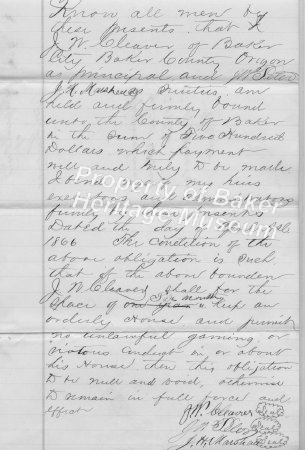 Know all men by
these presents that I
J. W. Cleaver of Baker
City Baker County Oregon
as principal and
J. H. Marshall as Sureties, am
held and firmly bound
unto the County of Baker
in the Sum of Five Hundred
Dollars which payment
well and truly to be made
I bind my heirs
executors and
firmly by these presents
Dated the day of
1866 The Condition of the
above obligation is such
that if the above bounden
J. W. Cleaver shall for the
Space of one year Six months keep an
orderly House and permit
no unlawful gaming, or
riotous conduct in or about
his House then this obligation
to be null and void, otherwise
to remain in full force and
effect
J. W. Cleaver Seal
Seal
J. H. Marshall Seal
Property of Baker
Heritage Museum